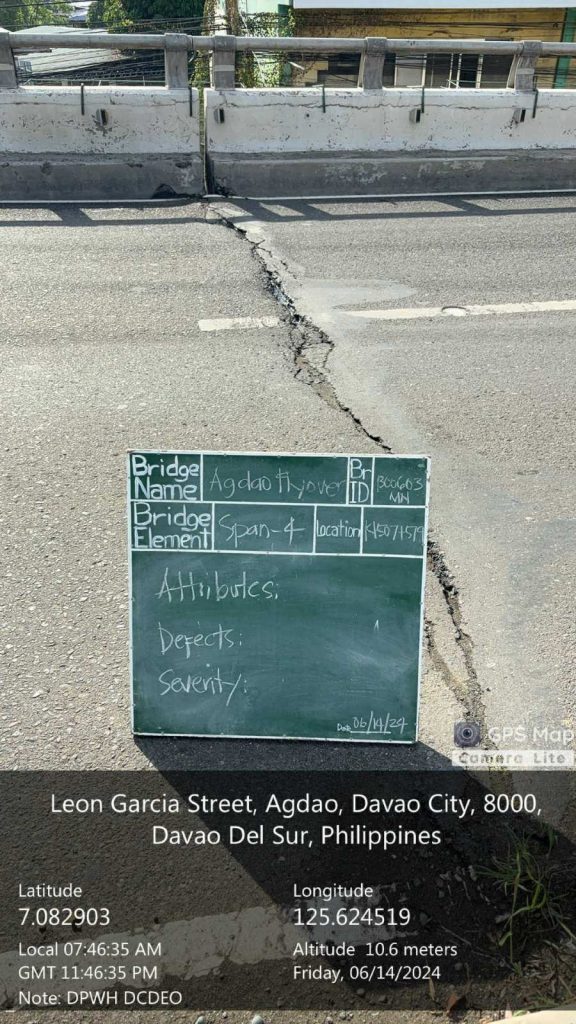 Bridge Name Agdao Flyover Br ID B00603 MN
Bridge Element Span-4 Location K1507+579
Attributes:
Defects:
Severity:
Date 06/14/24
GPS Map
Camera Lite
Leon Garcia Street, Agdao, Davao City, 8000,
Davao Del Sur, Philippines
Latitude Longitude
7.082903 125.624519
Local 07:46:35 AM Altitude 10.6 meters
GMT 11:46:35 PM Friday, 06/14/2024
Note: DPWH DCDEO